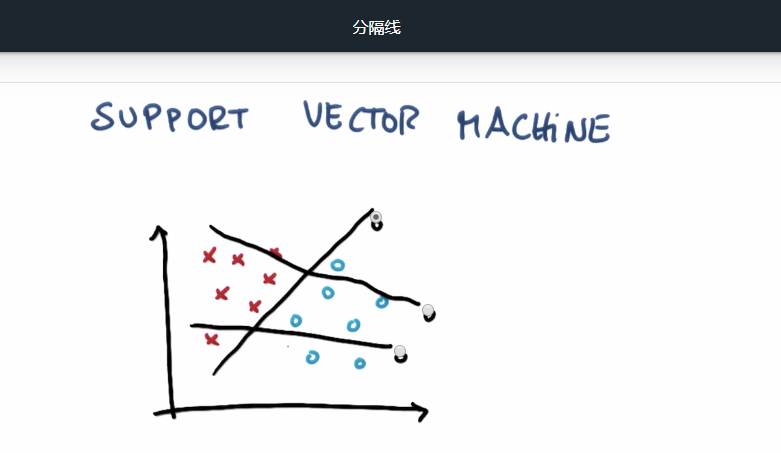 分隔线
SUPPORT VECTOR MACHINE